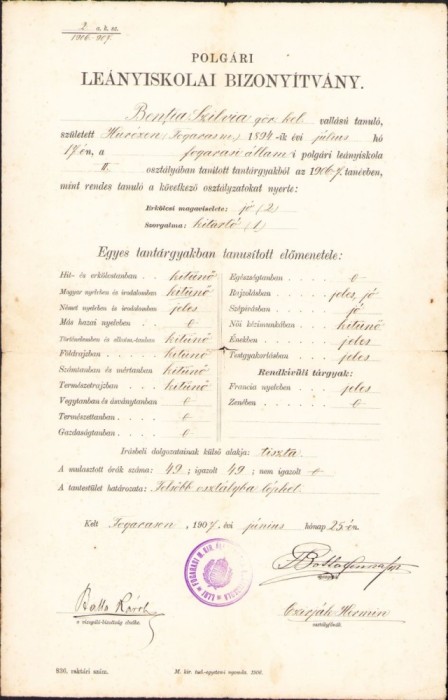 2. a. k. sz.
1906-907.
POLGÁRI
LEÁNYISKOLAI BIZONYÍTVÁNY.
Bentia Szilvia gör. kel. vallású tanuló,
született Hurizen (Fogarasm.) 1894-ik évi július hó
17-én, a fogarasi állami polgári leányiskola
II. osztályában tanított tantárgyakból az 1906-7. tanévben,
mint rendes tanuló a következő osztályzatokat nyerte:
Erkölcsi magaviselete: jó (2)
Szorgalma: kitartó (1)
Egyes tantárgyakban tanusított előmenetele:
Hit- és erkölcstanban . . . kitünő
Magyar nyelvben és irodalomban kitünő
Német nyelvben és irodalomban jeles
Más hazai nyelvben . . . 0
Történelemben és alkotm.-tanban kitünő
Földrajzban . . . kitünő
Számtanban és mértanban kitünő
Természetrajzban . . . kitünő
Vegytanban és ásványtanban 0
Természettanban . . . 0
Gazdaságtanban . . . 0
Egészségtanban . . . 0
Rajzolásban . . . jeles, jó
Szépírásban . . . jó
Női kézimunkában . . . kitünő
Énekben . . . jeles
Testgyakorlásban . . . jeles
Rendkívüli tárgyak:
Francia nyelvben . . . jeles
Zenében . . . 0
Írásbeli dolgozatainak külső alakja: tiszta.
A mulasztott órák száma: 49; igazolt 49; nem igazolt 0
A tantestület határozata: Felsőbb osztályba léphet.
Kelt Fogarason, 1907. évi június hónap 25-én.
Balla Károly
a vizsgáló-bizottság elnöke.
Hermin
osztályfőnök
936. raktári szám.
M. kir. tud.-egyetemi nyomda. 1906.